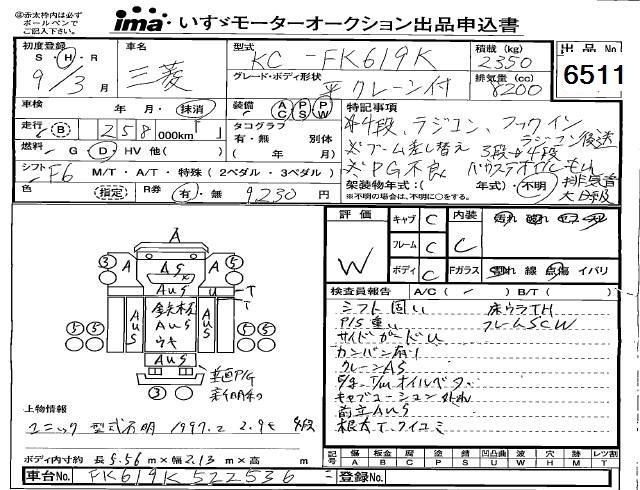 ◎太赤枠内は必ず
ボールペンで
ご記入下さい。
ima いすゞモーターオークション出品申込書
初度登録 車名 型式 KC-FK619K 積載 (kg) 2350 出品No
S・H・R 9/3月 三菱 グレード・ボディ形状 平クレーン付 排気量 (cc) 8200 6511
車検 年 月・抹消 装備 AC PS PW 特記事項
走行 (B) 258 000km タコグラフ 有・無 別体 (年 月)
4段、ラジコン、フックイン
燃料 G D HV 他( )
ブーム差し替え 3段→4段 ラジコン後送
シフト F6 M/T・A/T・特殊(2ペダル・3ペダル)
PG不良
架装物年式:( 年式)・不明
※不明の場合は、不明に○をする。
色 (指定) R券 有・無 9,230円
評価 W キャブ C 内装 C
フレーム C
ボディ C Fガラス 割れ 線 点傷 イバリ
検査員報告 A/C ( / ) B/T ( )
シフト固い 床ウラTH
P/S重い フレームSCW
サイドガードU
カンバン有り
クレーンAS
T/mオイルベタ
キャブコーション外れ
前立AUS
根太T、クイコミ
A
3 A AS A 5
AUS U T
AUS 鉄板 AUS ウキ AUS T
5 5 5 5
AUS
3
上物情報
ユニック 型式不明 1997.2 2.9t 4段
ボディ内寸約 長 5.56 m×幅 2.13 m×高 m
記号 傷 板金 腐 サビ 曲 凹凸曲 W 穴 跡 レツ割
A B C S P U W H M T
車台No. FK619K522536 登録No.